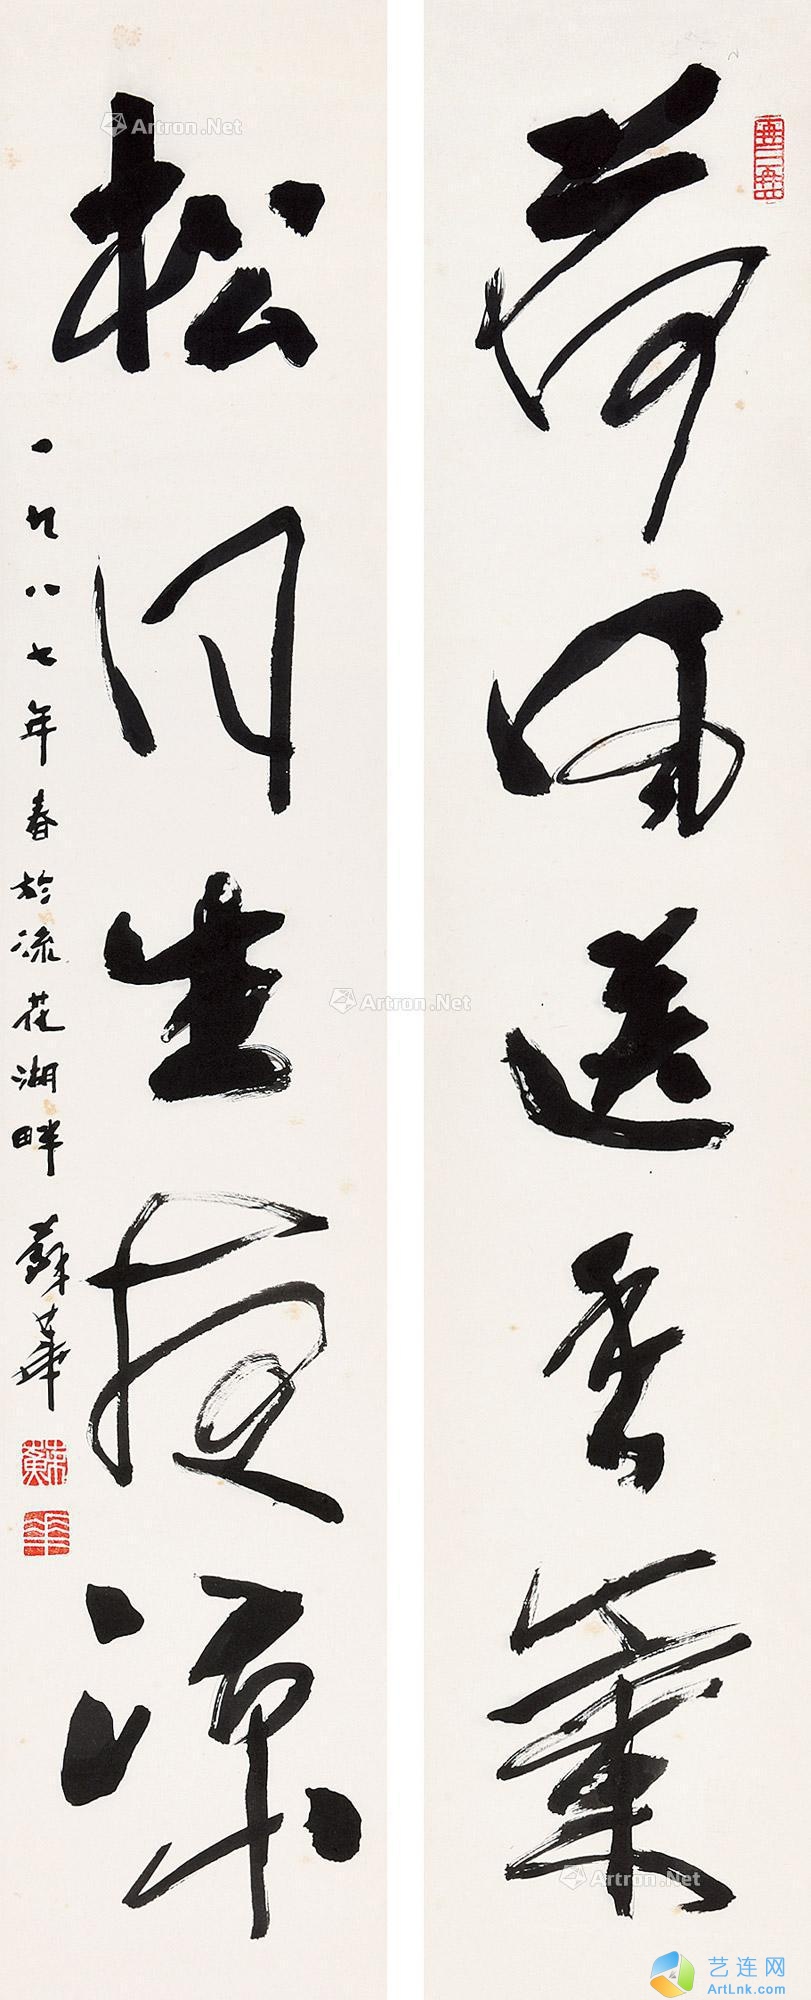 荷风送香气
松月生夜凉
一九八七年春於流花湖畔 蘇華
蘇
華
Artron.Net
Artron.Net
Artron.Net
艺连网
ArtLnk.com